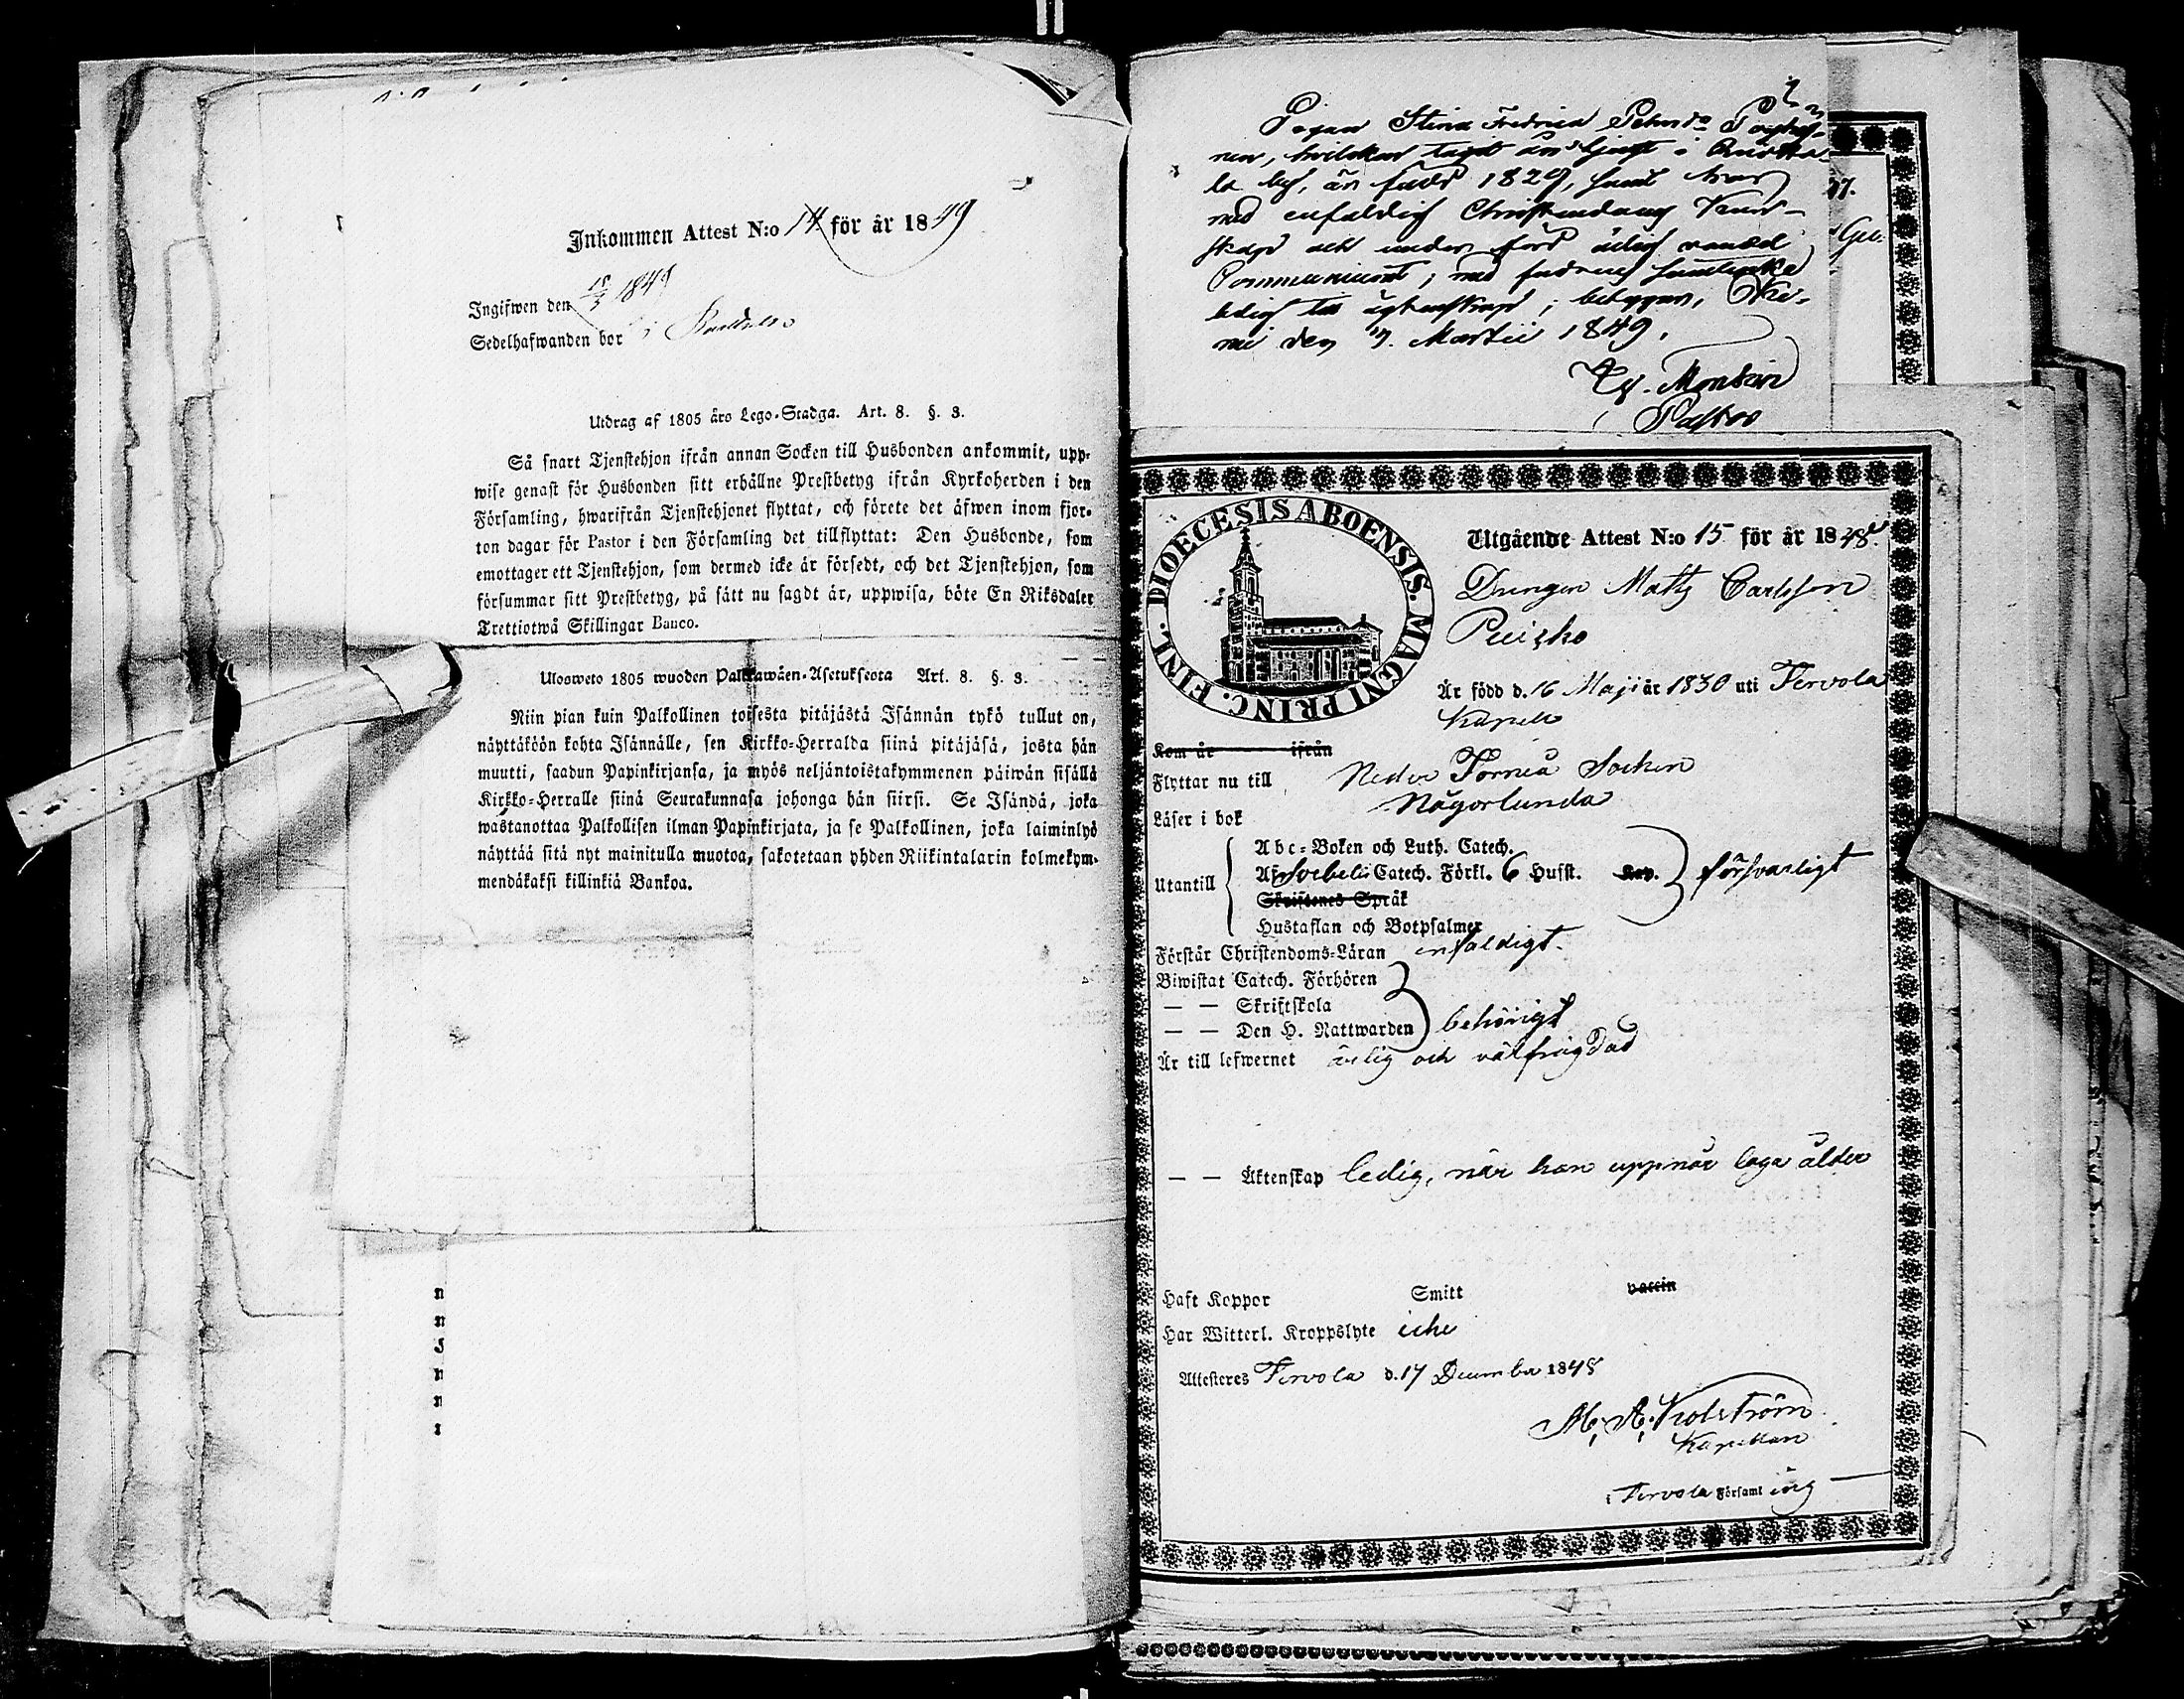 Inkommen Attest N:o 14 för år 1849
Ingifwen den 18/3 1849
Sedelhafwanden bor i
Utdrag af 1805 års Lego-Stadga. Art. 8. §. 3.
Så snart Tjenstehjon ifrån annan Socken till Husbonden ankommit, upp-
wise genast för Husbonden sitt erhållne Prestbetyg ifrån Kyrkoherden i den
Församling, hwarifrån Tjenstehjonet flyttat, och förete det äfwen inom fjor-
ton dagar för Pastor i den Församling det tillflyttat: Den Husbonde, som
emottager ett Tjenstehjon, som dermed icke är försedt, och det Tjenstehjon, som
försummar sitt Prestbetyg, på sätt nu sagdt är, uppwisa, böte En Riksdaler
Trettiotwå Skillingar Banco.
Ulosweto 1805 wuoden Palkkawäen-Asetuksesta Art. 8. §. 3.
Niin pian kuin Palkollinen toisesta pitäjästä Isännän tykö tullut on,
näyttäköön kohta Isännälle, sen Kirkko-Herralda siinä pitäjäsä, josta hän
muutti, saadun Papinkirjansa, ja myös neljäntoistakymmenen päiwän sisällä
Kirkko-Herralle siinä Seurakunnasa johonga hän siirsi. Se Isändä, joka
wastanottaa Palkollisen ilman Papinkirjata, ja se Palkollinen, joka laiminlyö
näyttää sitä nyt mainitulla muotoa, sakotetaan yhden Riikintalarin kolmekym-
mendäkaksi killinkiä Bankoa.
Pigan Stina Fredrica Pehrsdr
nen, hvilken tagit sin tjenst i
la by, är född 1829, samt har
med enfaldig Christendoms Kun-
skap och under förd ärlig vandel
Communicerat; med
ledig till ägtenskap; betygar, Ke-
mi den 17. Martii 1849.
Pastor
DIOECESIS ABOENSIS. MAGNI PRINC. FINL.
Utgående Attest N:o 15 för år 1848.
Drengen Matts Carlsson
Är född d. 16 Maji år 1830 uti Tervola
Kapell
Kom år ifrån
Flyttar nu till Neder Torneå Socken
Läser i bok någorlunda
Utantill
Abc-Boken och Luth. Catech.
Af Svebelii Catech. Förkl. 6 Hufst. Kap. försvarligt
Skriftenes Språk
Hustaflan och Botpsalmer
Förstår Christendoms-Läran enfaldigt.
Biwistat Catech. Förhören
— — Skriftskola
— — Den H. Nattwarden behörigt
Är till lefwernet ärlig och välfrägdad
— — Äktenskap ledig, när han uppnår laga ålder
Haft Koppor Smitt vaccin
Har Witterl. Kroppslyte icke
Attesteres Tervola d. 17 December 1848
Kapellan
i Tervola Församling